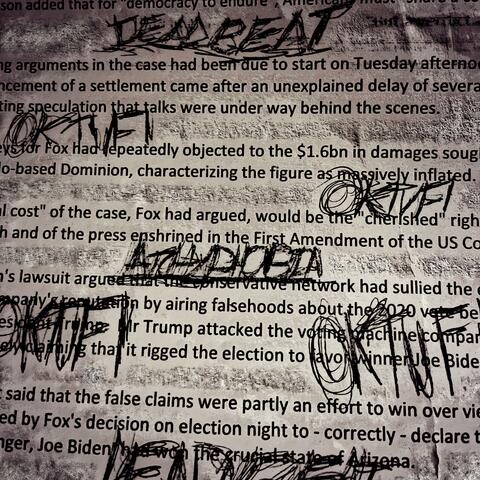 son added that for "democracy to endure", American
DEADBEAT
ng arguments in the case had been due to start on Tuesday afternoo
ncement of a settlement came after an unexplained delay of severa
ting speculation that talks were under way behind the scenes.
OKTUF!
eys for Fox had repeatedly objected to the $1.6bn in damages soug
do-based Dominion, characterizing the figure as massively inflated.
OKTUF!
al cost" of the case, Fox had argued, would be the "cherished" righ
h and of the press enshrined in the First Amendment of the US Co
n's lawsuit argued that the conservative network had sullied the
mpany's reputation by airing falsehoods about the 2020 vote
Mr Trump attacked the voting machine compan
claiming that it rigged the election to favor winner Joe Bide
OKTUF!
OKTUF!
t said that the false claims were partly an effort to win over vie
ed by Fox's decision on election night to - correctly - declare t
nger, Joe Biden, had won the crucial state of Arizona.